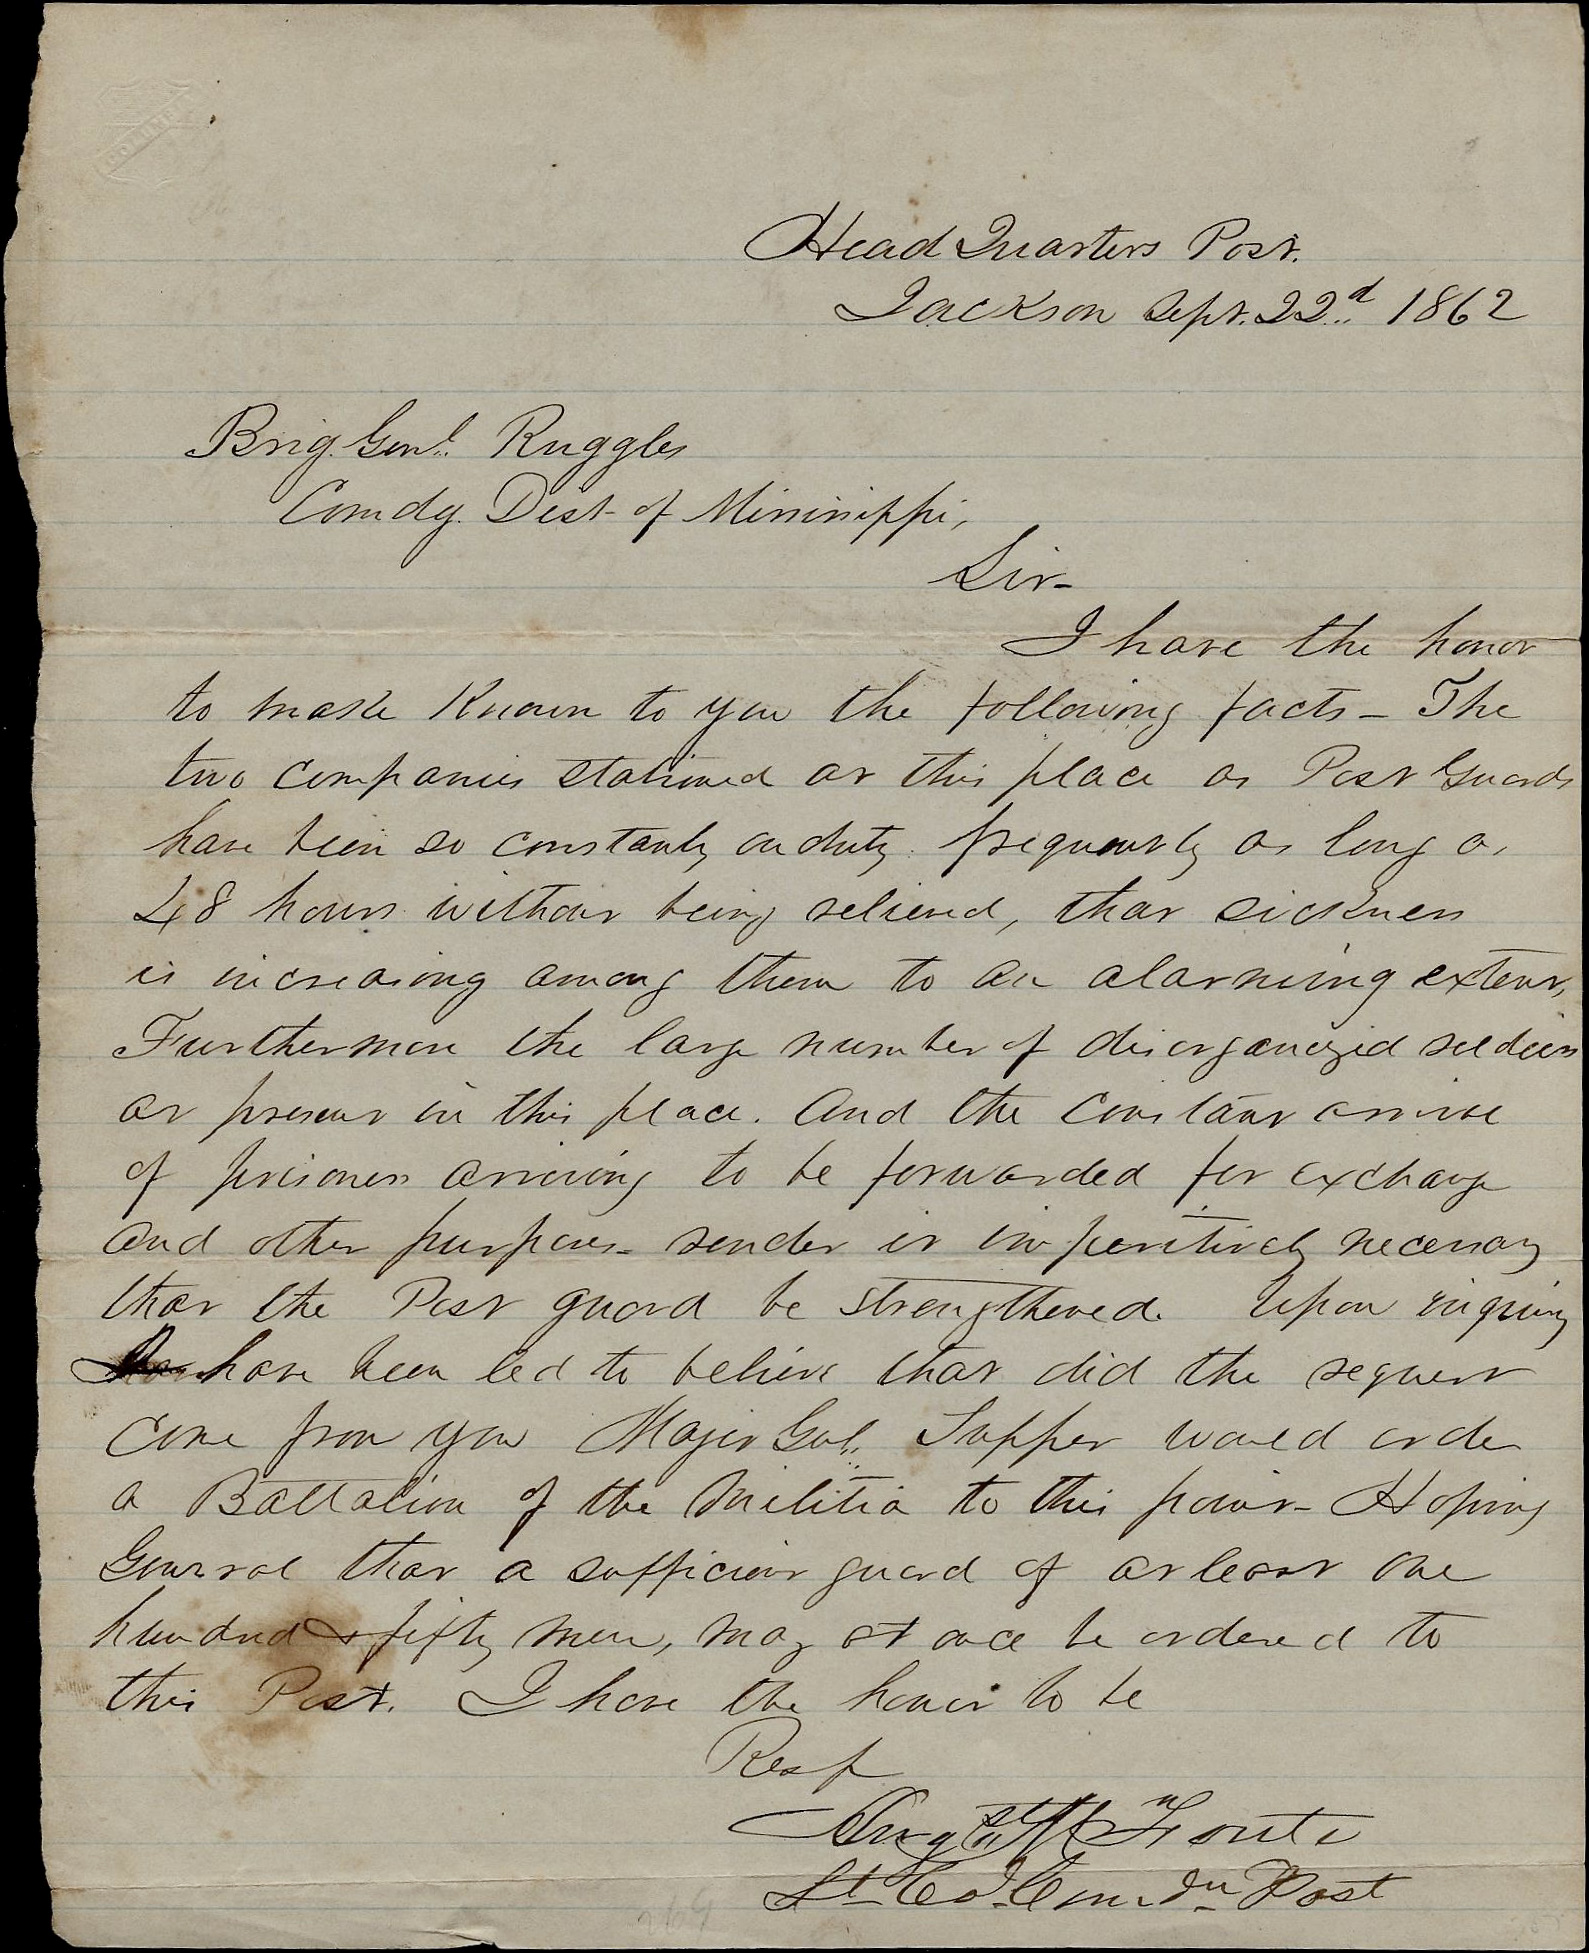 Head Quarters Post.
Jackson Sept. 22d 1862
Brig. Genl. Ruggles
Comdg. Dist. of Mississippi,
Sir-
I have the honor
to make Known to you the following facts - The
two companies stationed at this place as Post Guards
have been so constantly on duty frequently as long as
48 hours without being relieved, that sickness
is increasing among them to an alarming extent,
Furthermore the large number of disorganized soldiers
at present in this place. And the constant arrive
of prisoners arriving to be forwarded for exchange
and other purposes - render it imperitively necessary
that the Post guard be strengthened. Upon inquiry
have been led to believe that did the request
come from you Major Genl. Tupper would order
a Battalion of the Militia to this point - Hoping
General that a sufficient guard of at least one
hundred & fifty men, may at once be ordered to
this Post. I have the honor to be
Resp
Augst
Lt. Col. Comdn Post